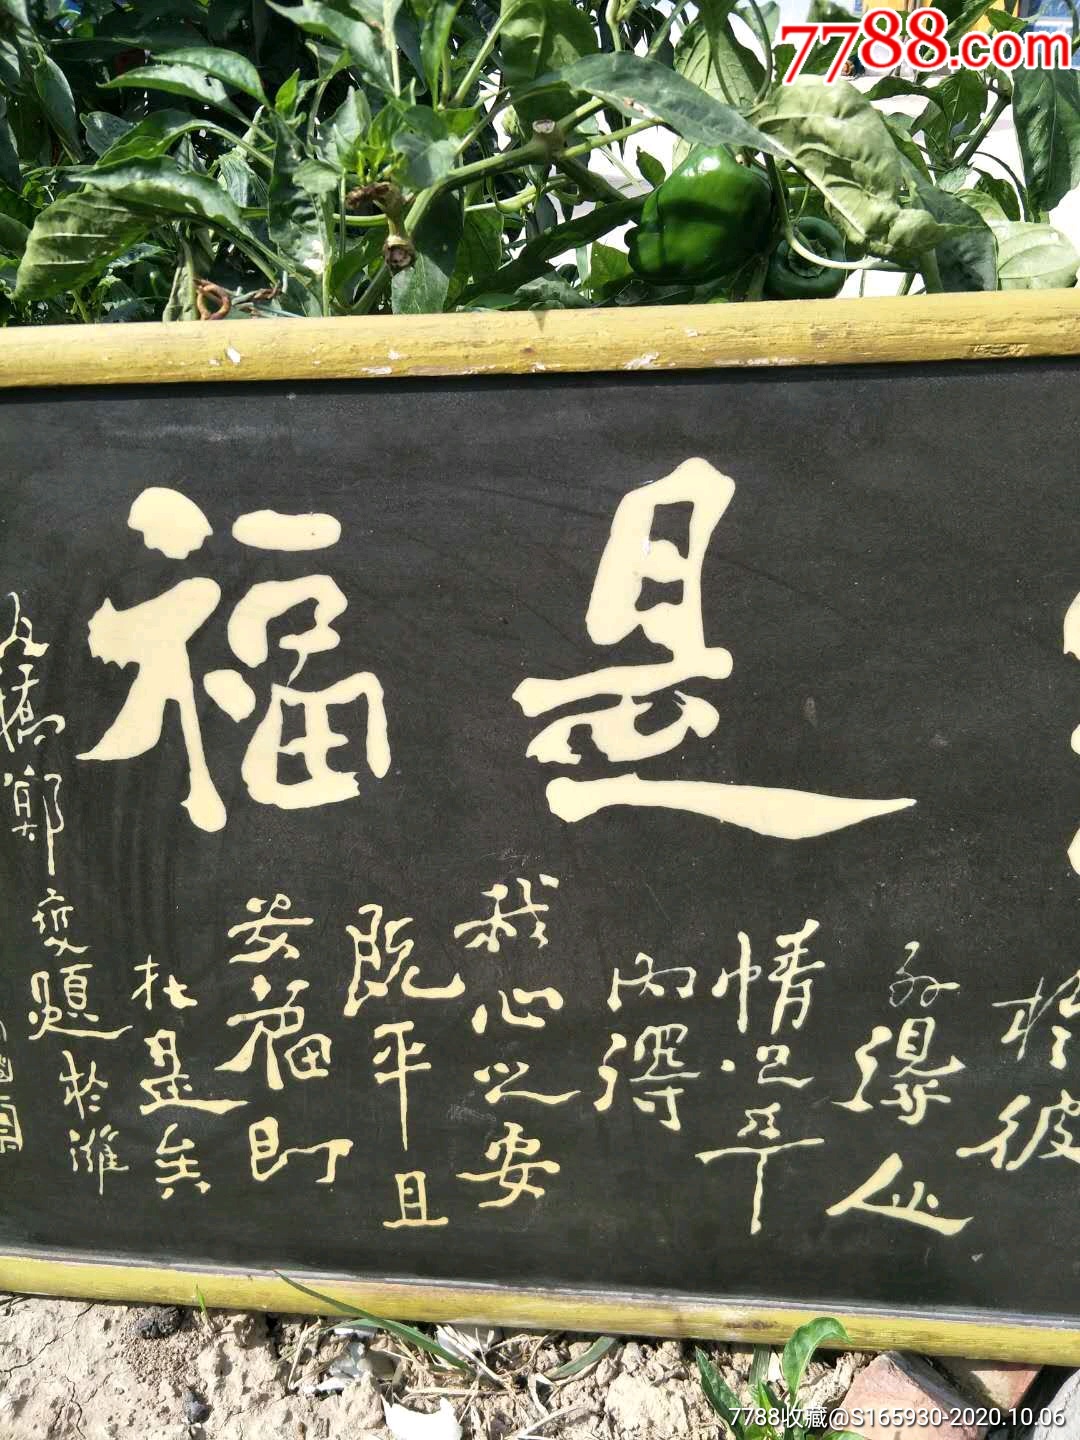 7788.com
是福
於彼
外得人
情之平
内得
我心之安
既平且
安福即
在是矣
板橋鄭燮題於濰
7788收藏@S165930-2020.10.06